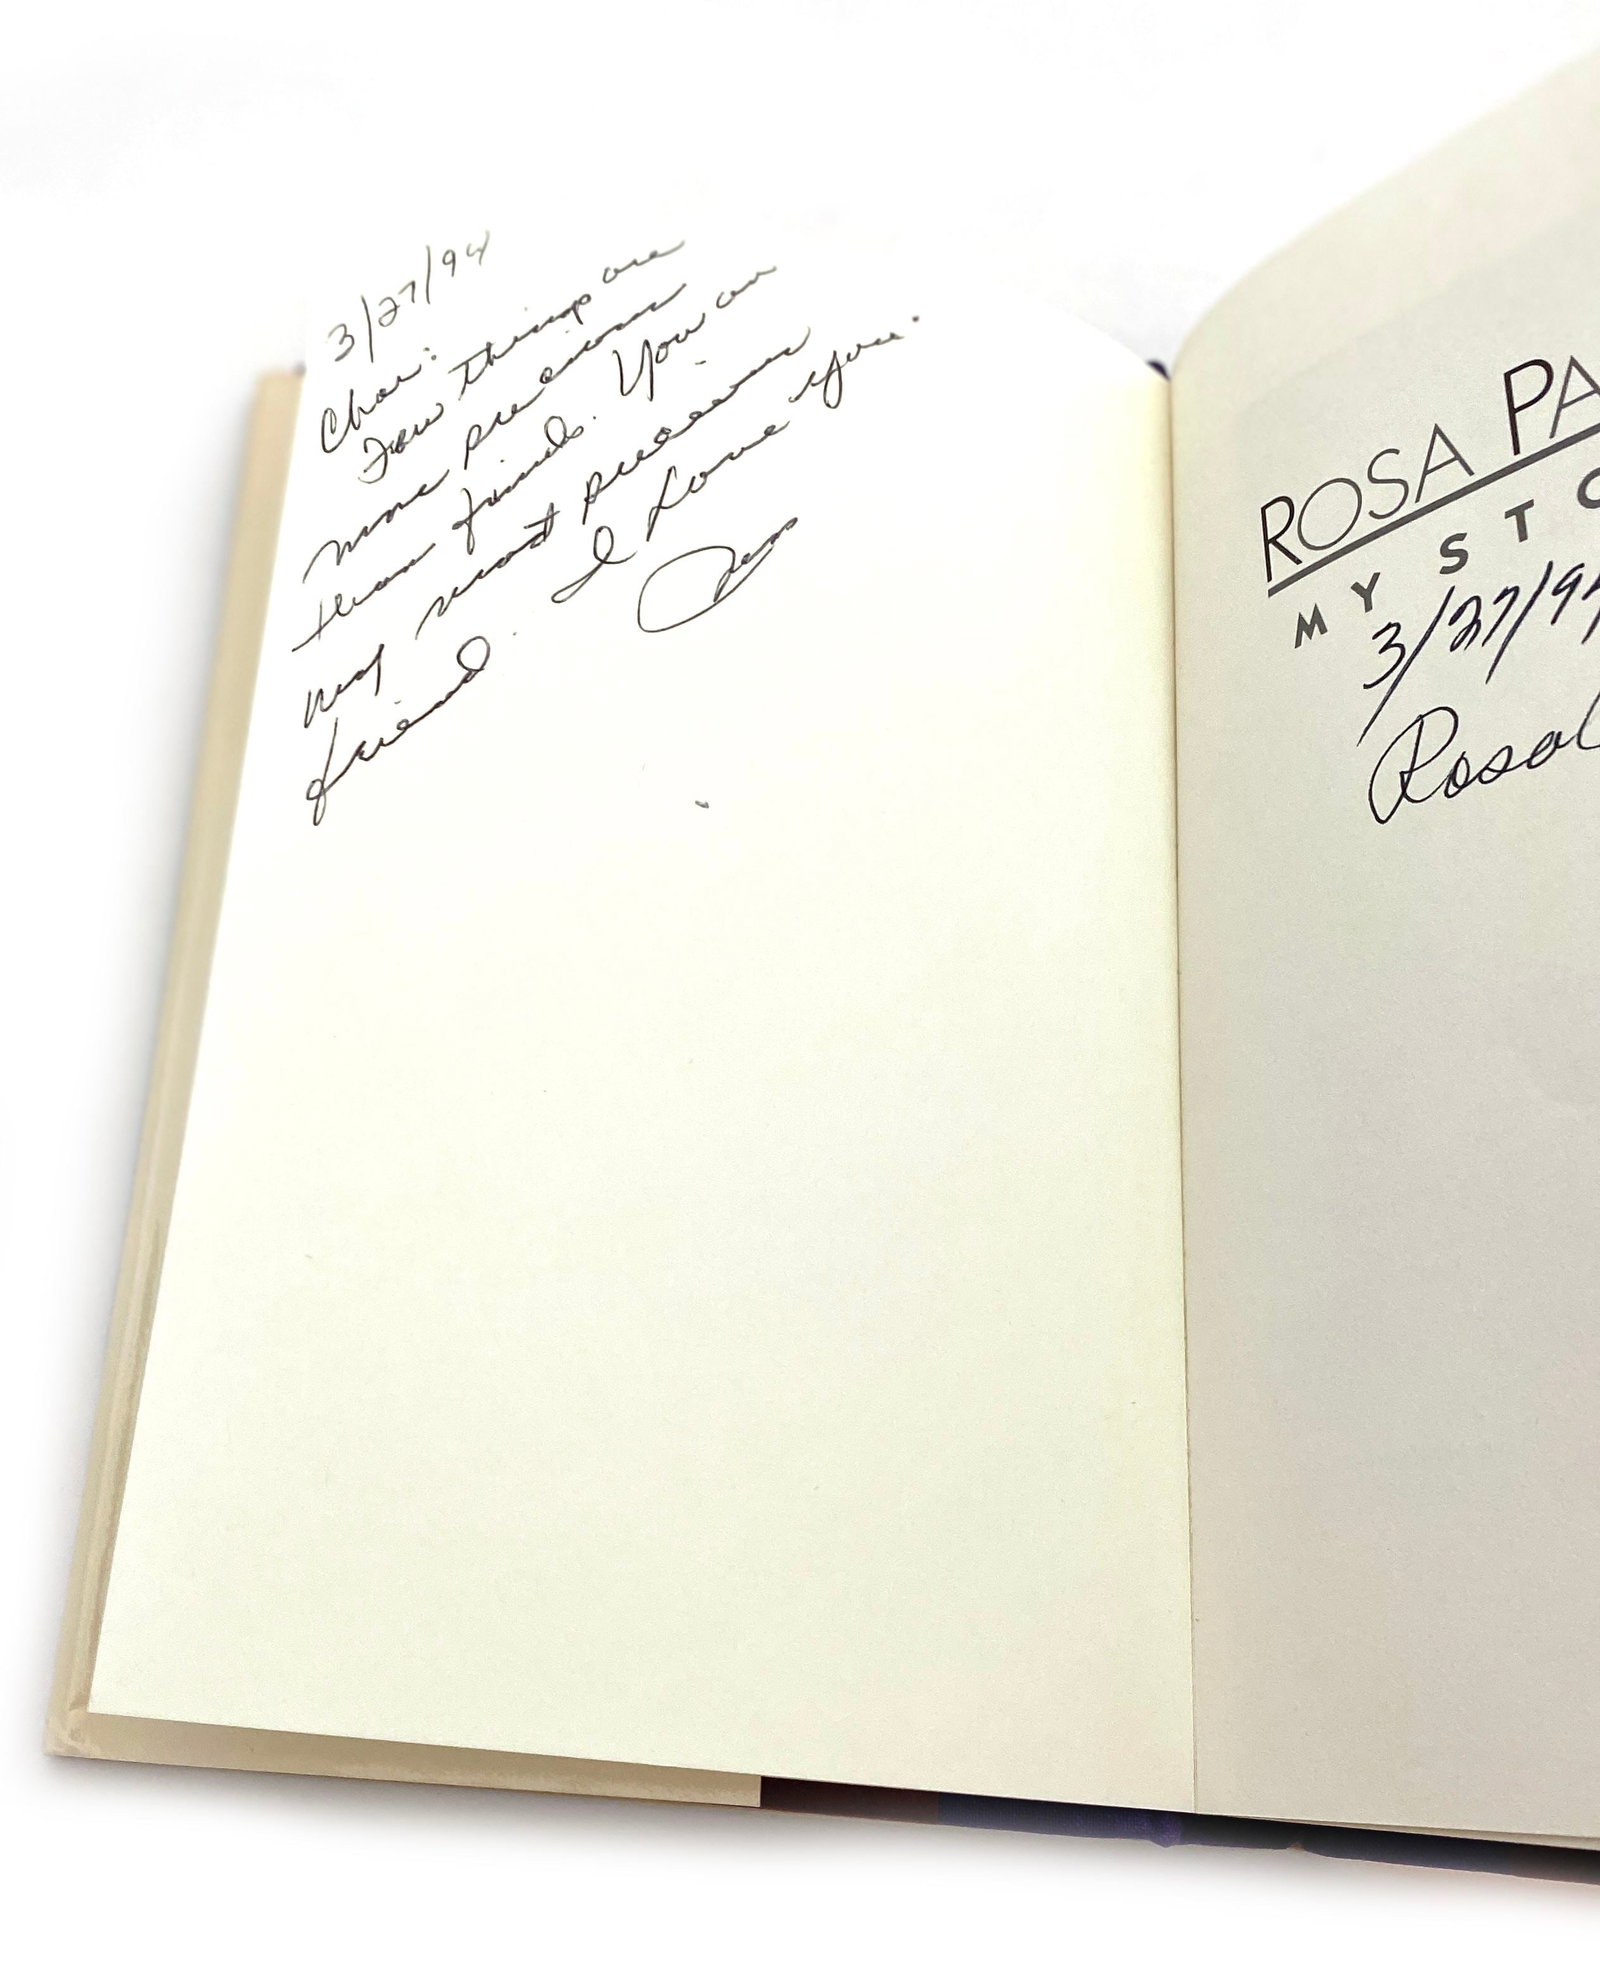 3/27/94
Char:
Few things are
more precious
than friends. You are
my most precious
friend. I Love You.
ROSA PA
MY STO
3/27/94
Rosa